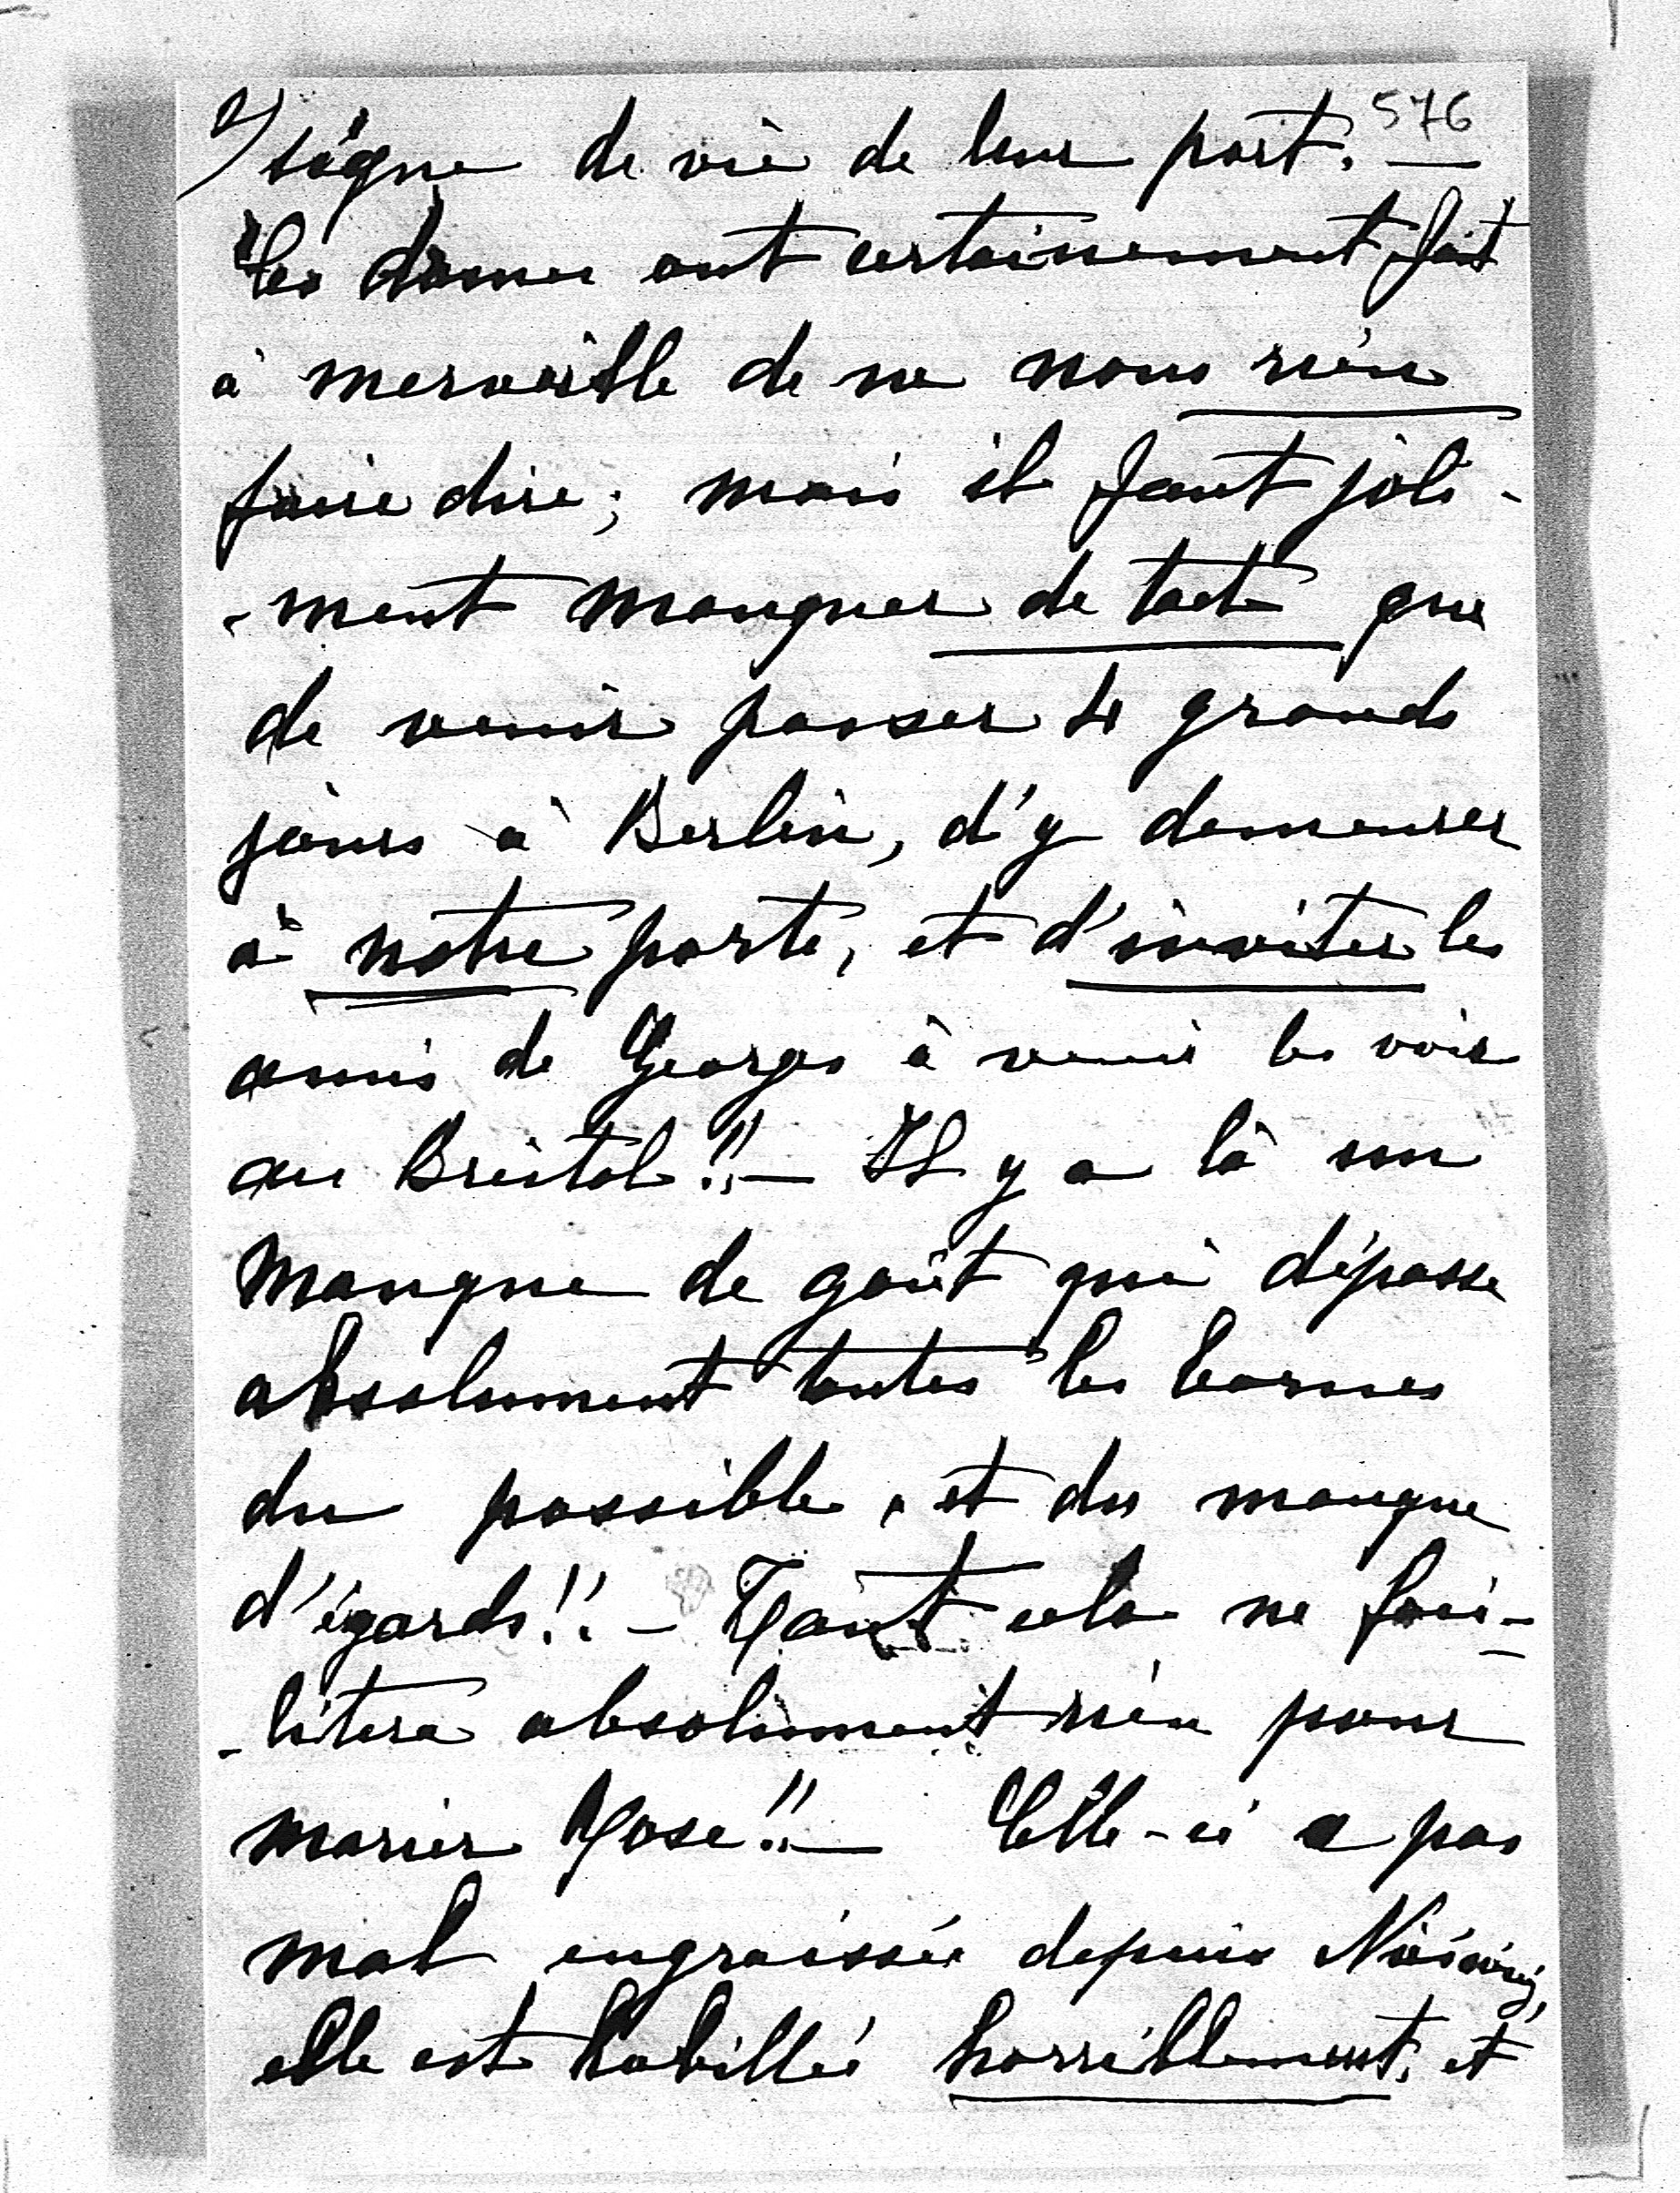 2/ 576
signe de vie de leur part. —
Ces dames ont certainement fait
à merveille de ne nous rien
faire dire; mais il faut joli-
-ment manquer de tact que
de venir passer 4 grands
jours à Berlin, d'y demeurer
à notre porte, et d'inviter les
amis de Georges à venir les voir
au Bristol!! — Il y a là un
manque de goût qui dépasse
absolument toutes les bornes
du possible, et du manque
d'égards!! — Tout cela ne faci-
-litera absolument rien pour
marier Rose!! — Celle-ci a pas
mal engraissée depuis
elle est habillée horriblement, et